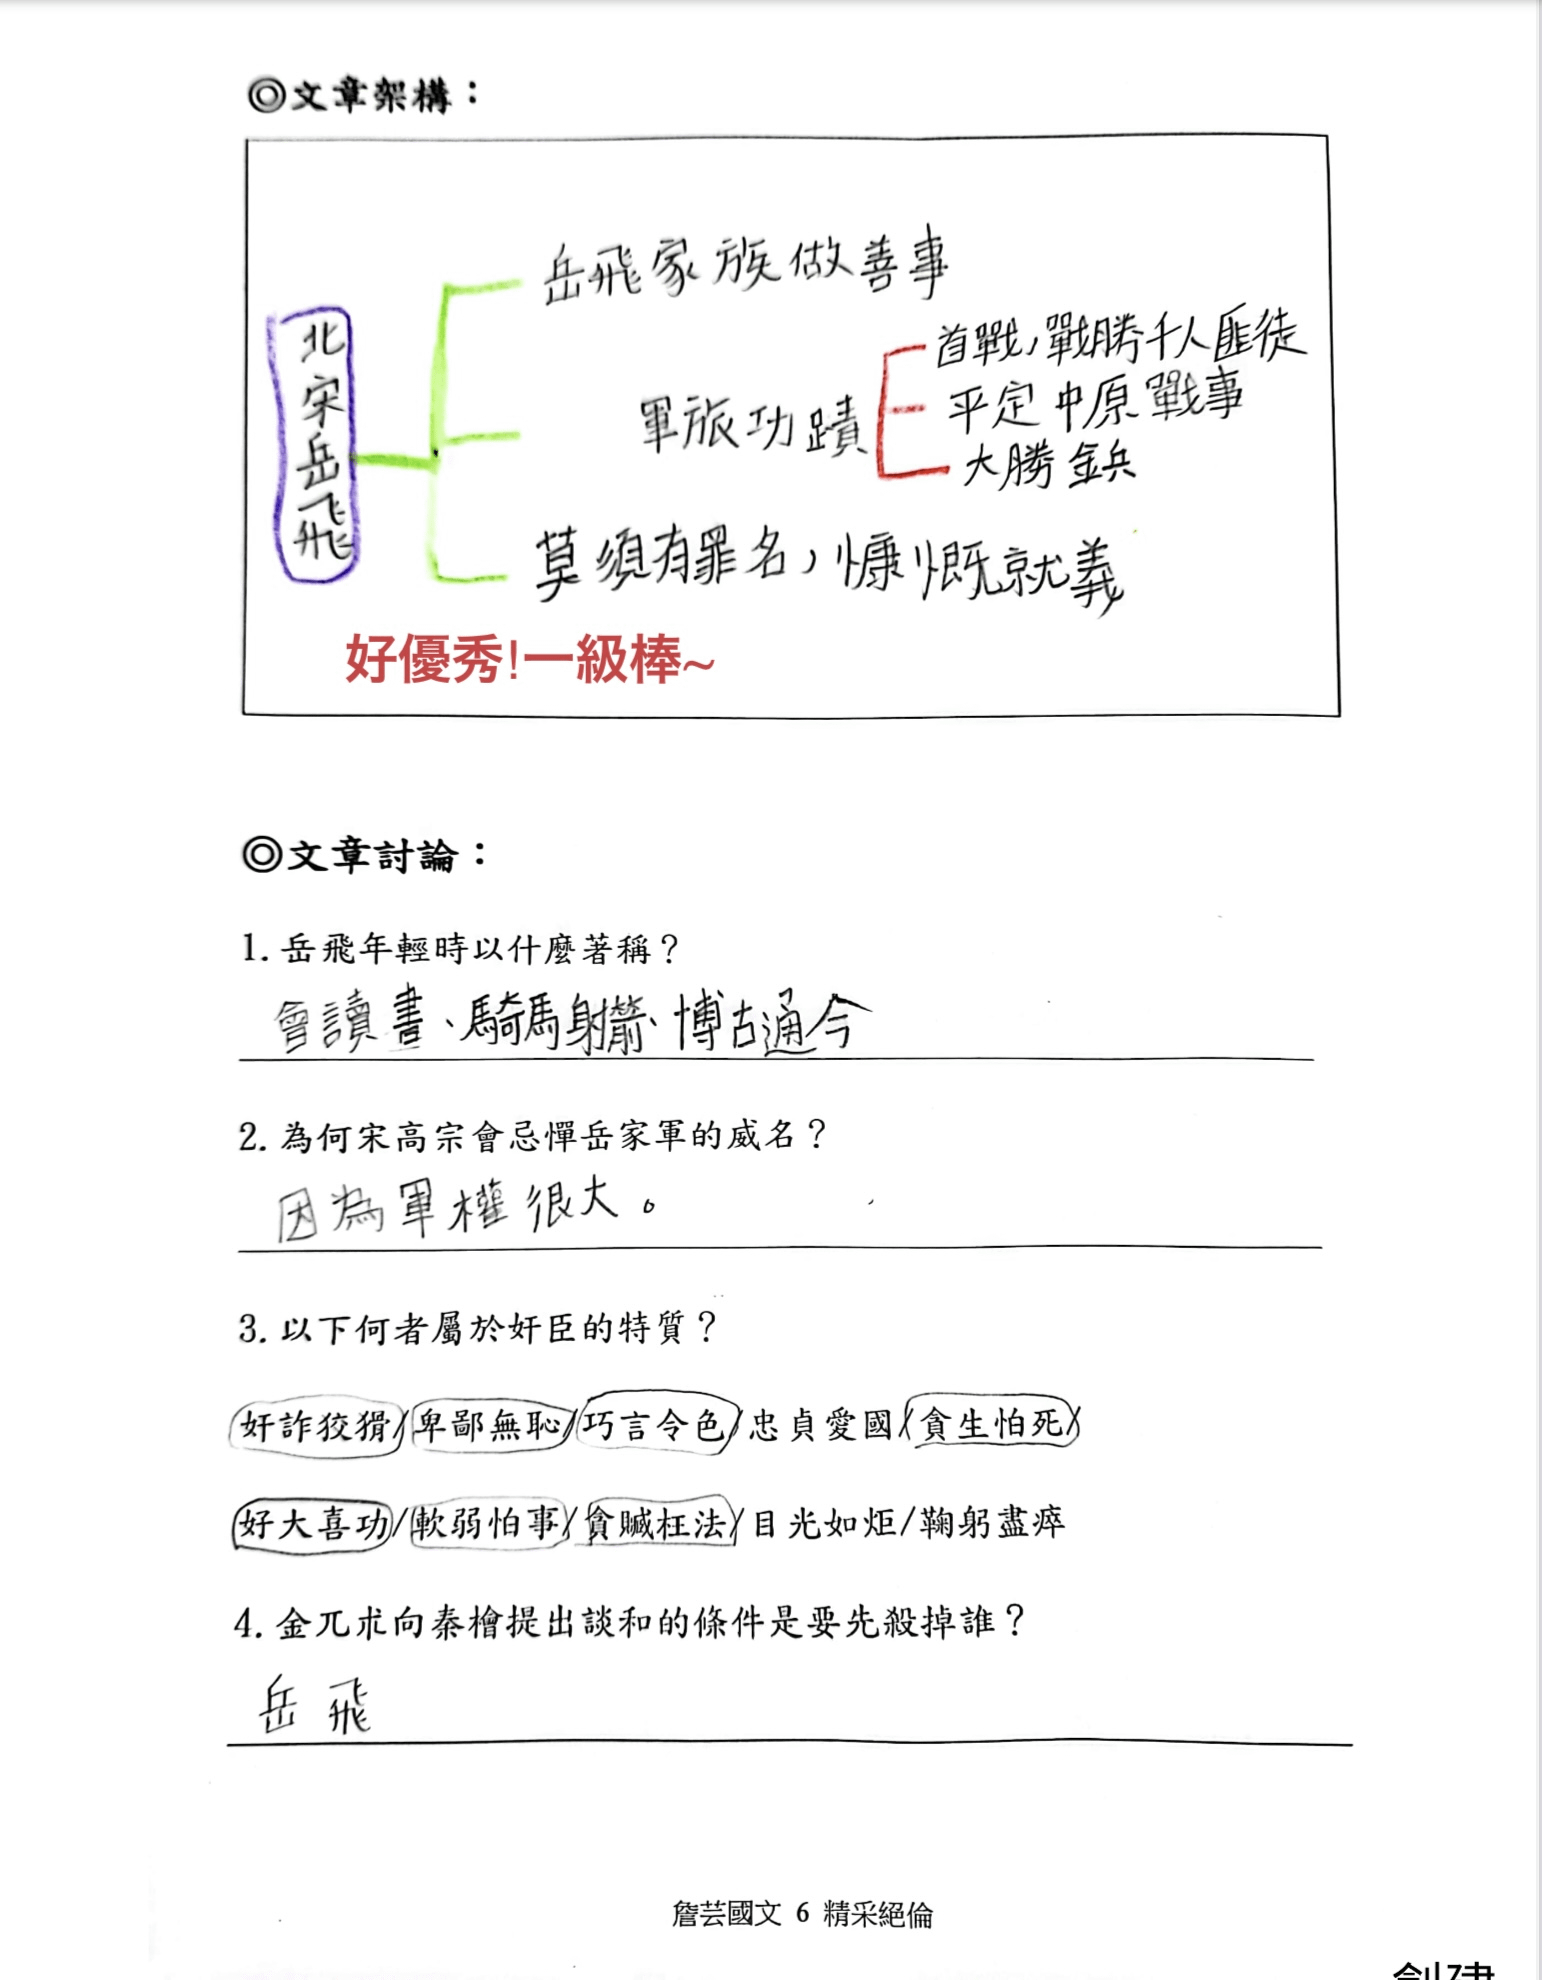 ◎文章架構：
北宋岳飛
岳飛家族做善事
軍旅功蹟
首戰，戰勝千人匪徒
平定中原戰事
大勝金兵
莫須有罪名，慷慨就義
好優秀!一級棒~
◎文章討論：
1. 岳飛年輕時以什麼著稱？
會讀書、騎馬射箭、博古通今
2. 為何宋高宗會忌憚岳家軍的威名？
因為軍權很大。
3. 以下何者屬於奸臣的特質？
奸詐狡猾/卑鄙無恥/巧言令色/忠貞愛國/貪生怕死/
好大喜功/軟弱怕事/貪贓枉法/目光如炬/鞠躬盡瘁
4. 金兀朮向秦檜提出談和的條件是要先殺掉誰？
岳飛
詹芸國文 6 精采絕倫